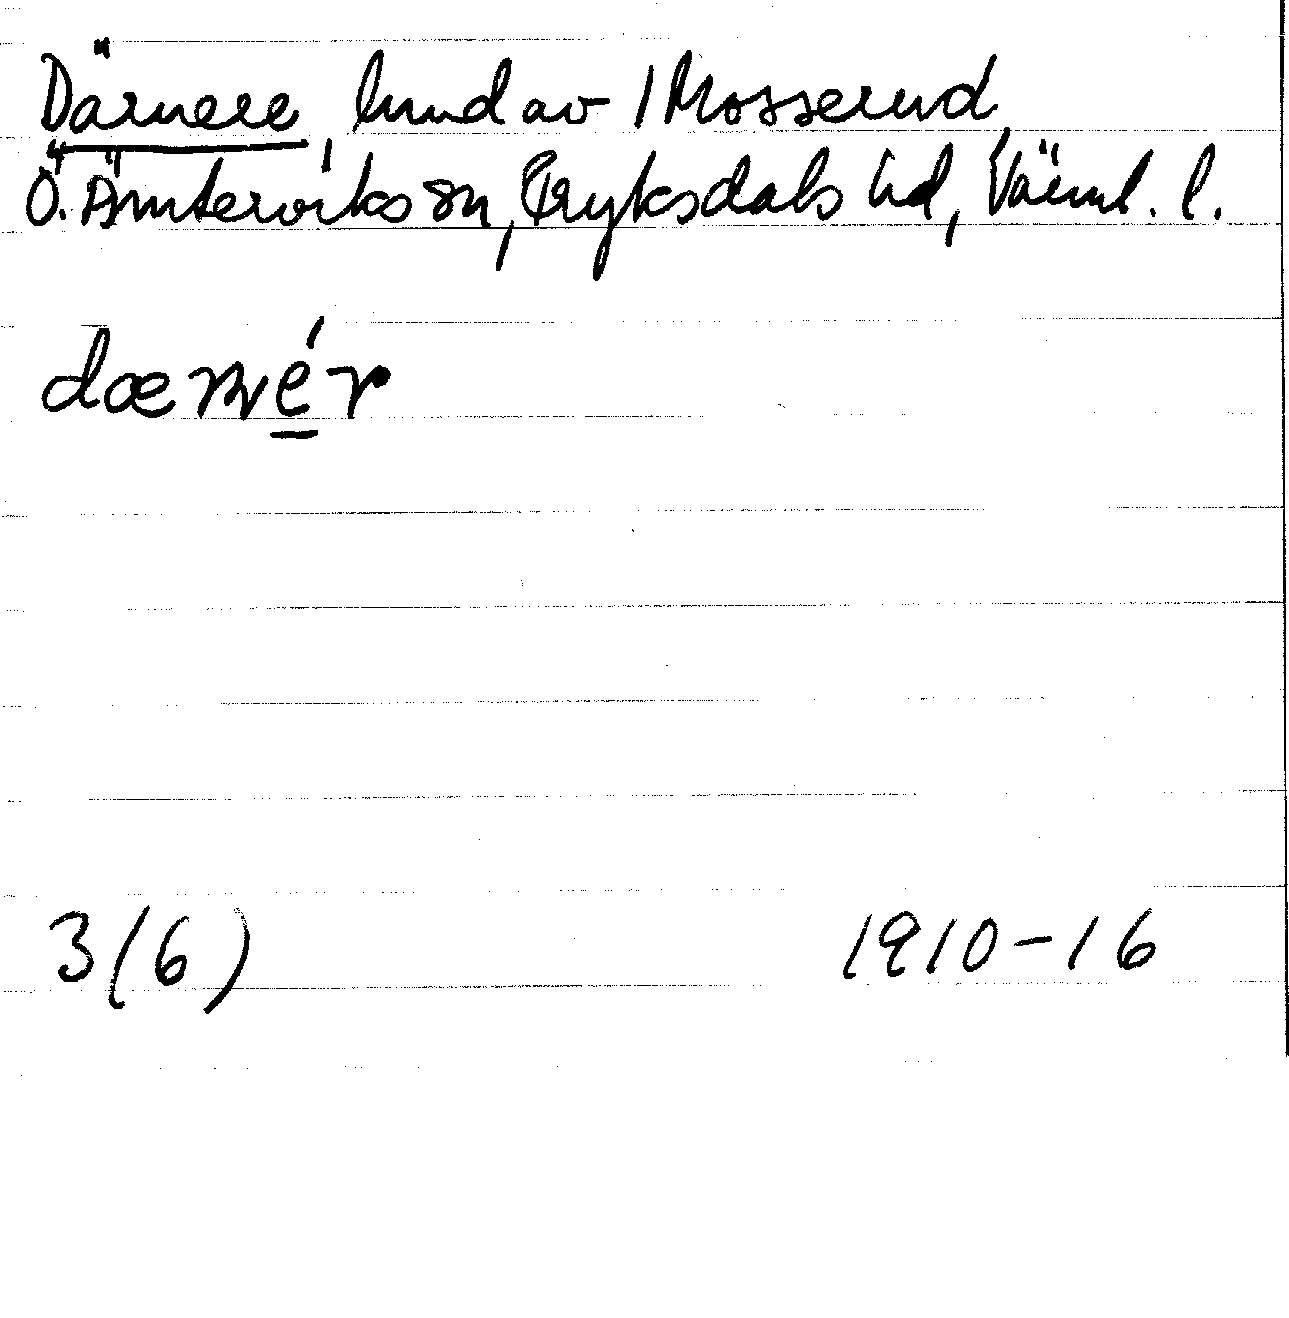 Därnere, hmd av 1 Mosserud,
Ö. Ämterviks sn, Fryksdals hd, Värml. l.
dærnér
3(6) 1910-16